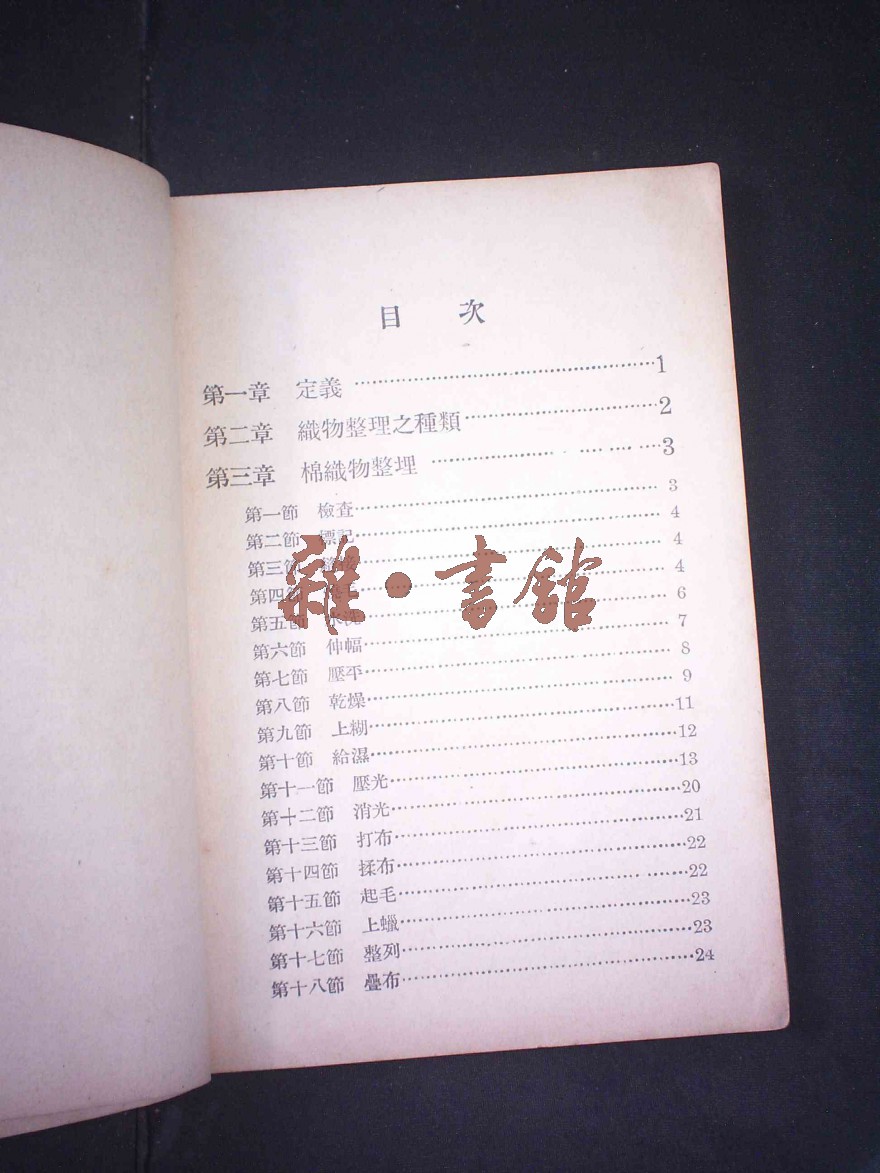 目　次
第一章　定義……………………………………1
第二章　織物整理之種類………………………2
第三章　棉織物整理……………………………3
第一節　檢查……………………………………3
第二節　標記……………………………………4
第三節　……………………………………4
第四節　毛……………………………………4
第五節　水洗……………………………………6
第六節　伸幅……………………………………7
第七節　壓平……………………………………8
第八節　乾燥……………………………………9
第九節　上糊……………………………………11
第十節　給濕……………………………………12
第十一節　壓光…………………………………13
第十二節　消光…………………………………20
第十三節　打布…………………………………21
第十四節　揉布…………………………………22
第十五節　起毛…………………………………22
第十六節　上蠟…………………………………23
第十七節　整列…………………………………23
第十八節　疊布…………………………………24
雜·書館